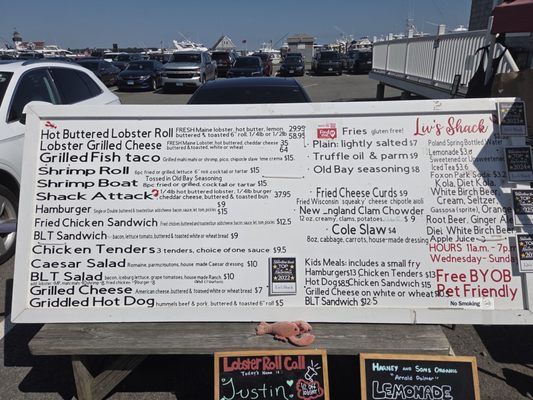 Hot Buttered Lobster Roll FRESH Maine lobster, hot butter, lemon 29.95
58.95
Lobster Grilled Cheese FRESH Maine lobster, butter, cheddar cheese 35
buttered & toasted wheat or white bread 64
Grilled Fish taco Grilled mahi mahi or shrimp, pico, chipotle slaw lime crema $15
Shrimp Roll 6pc fried or grilled lettuce cocktail or tartar $15
Tossed in Old Bay Seasoning
Shrimp Boat 8pc fried or grilled, cocktail or tartar $15
Shack Attack 1/4lb hot buttered lobster, 1/4lb burger 37.95
cheddar cheese, butter & toasted bun
Hamburger
$15
Fried Chicken Sandwich $12.5
BLT Sandwich bacon, lettuce tomato buttered & toasted wheat or bread $9
Chicken Tenders 3 tenders, choice of one sauce $9.5
Caesar Salad Romaine, parm, croutons, house made Caesar dressing $10
BLT Salad bacon, iceberg lettuce, grape tomatoes, house made Ranch $10
Grilled Cheese American cheese, buttered & toasted white or wheat bread $7
Griddled Hot Dog hummels beef & pork, buttered & toasted $5
Fries gluten free!
Plain: lightly salted $7
Truffle oil & parm $9
Old Bay seasoning $8
Fried Cheese Curds $9
Fried Wisconsin squeaky cheese chipotle aioli
New England Clam Chowder
12 oz. creamy, clams, potatoes $9
Cole Slaw $4
8oz, cabbage, carrots, house-made dressing
Kids Meals: includes a small fry
Hamburger $13 Chicken Tenders $13
Hot Dog $8.5 Chicken Sandwich $15
Grilled Cheese on white or wheat $10.5
BLT Sandwich $12.5
Liv's Shack
Poland Spring Bottled
Lemonade $3
Sweetened or Unsweetened
Iced Tea $3.6
Kola, Diet Kola
White Birch Beer
Cream, Seltzer,
Gassosa (sprite), Orange
Root Beer, Ginger Ale
White Birch, Diet Birch Beer
Apple Juice
HOURS 11a.m.-7p.m.
Wednesday-Sunday
Free BYOB
Pet Friendly
No Smoking
2022
Lobster Roll Call
Today's Name is:
Justin
Harney and Sons Organic
"Arnold Palmer"
LEMONADE